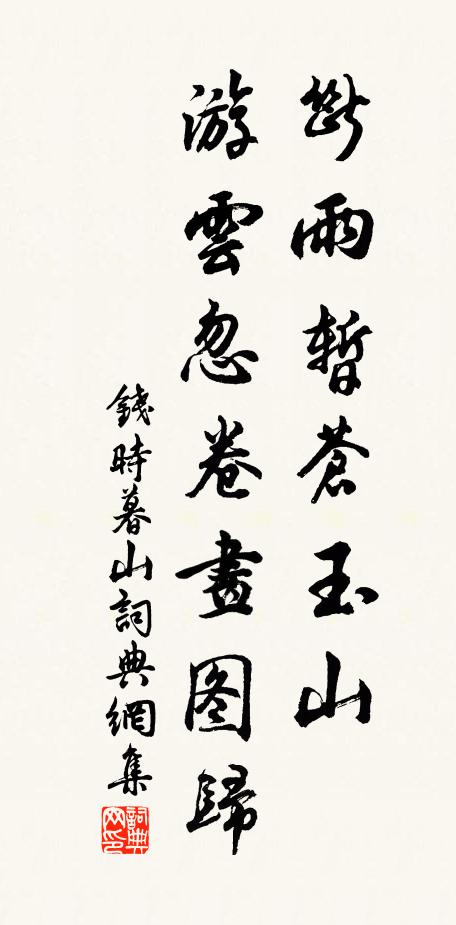 斷雨暫蒼玉山
游雲忽卷畫图歸
錢時暮山詞典網集
詞典网印